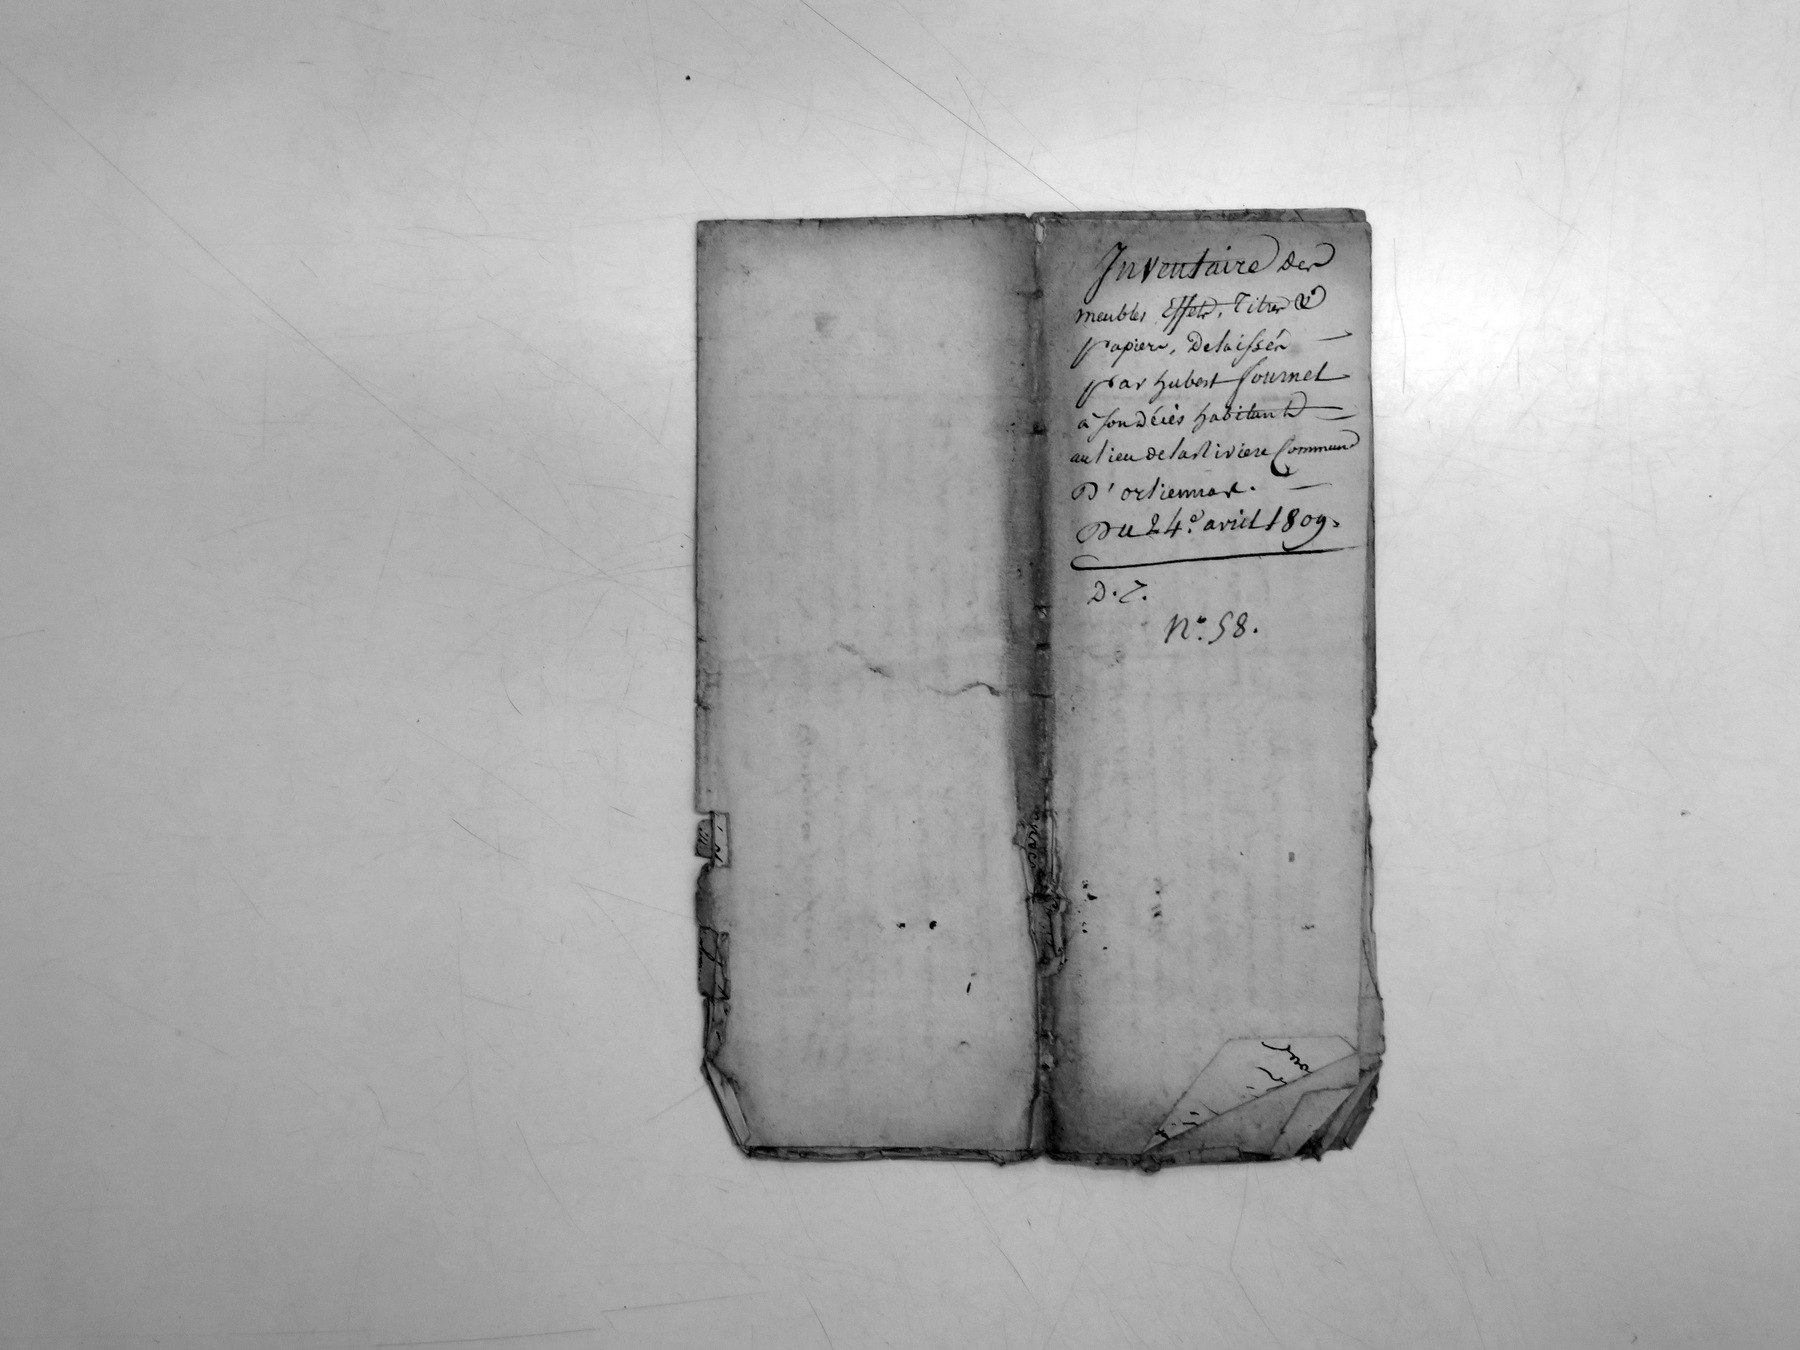 Inventaire des
meubles Effets, Titres &
papiers, Delaissés
par hubert fournet
à son décès habitant
au lieu de la Riviere Commune
D'orliennas.
Du 24e. avril 1809.
D. 7.
No. 58.